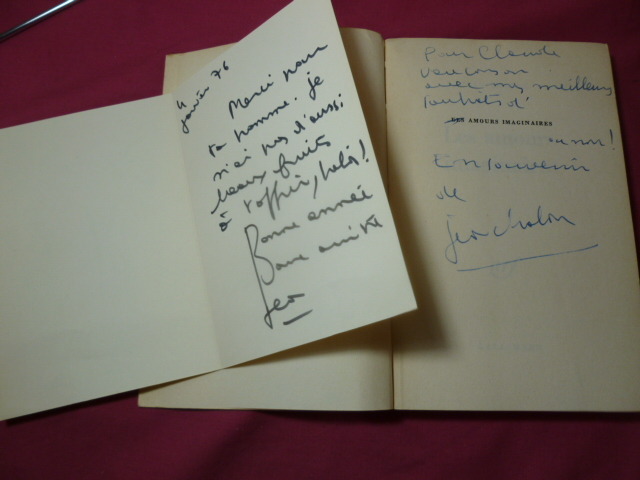 4
janvier 76
Merci pour
ta pomme. Je
n'ai pas d'aussi
beaux fruits
à t'offrir, hélas!
Bonne année
Bonne amitié
Jean
Pour Claude
avec mes meilleurs
souhaits d'
LES AMOURS IMAGINAIRES
ou non!
En souvenir
de
Jean Chalon